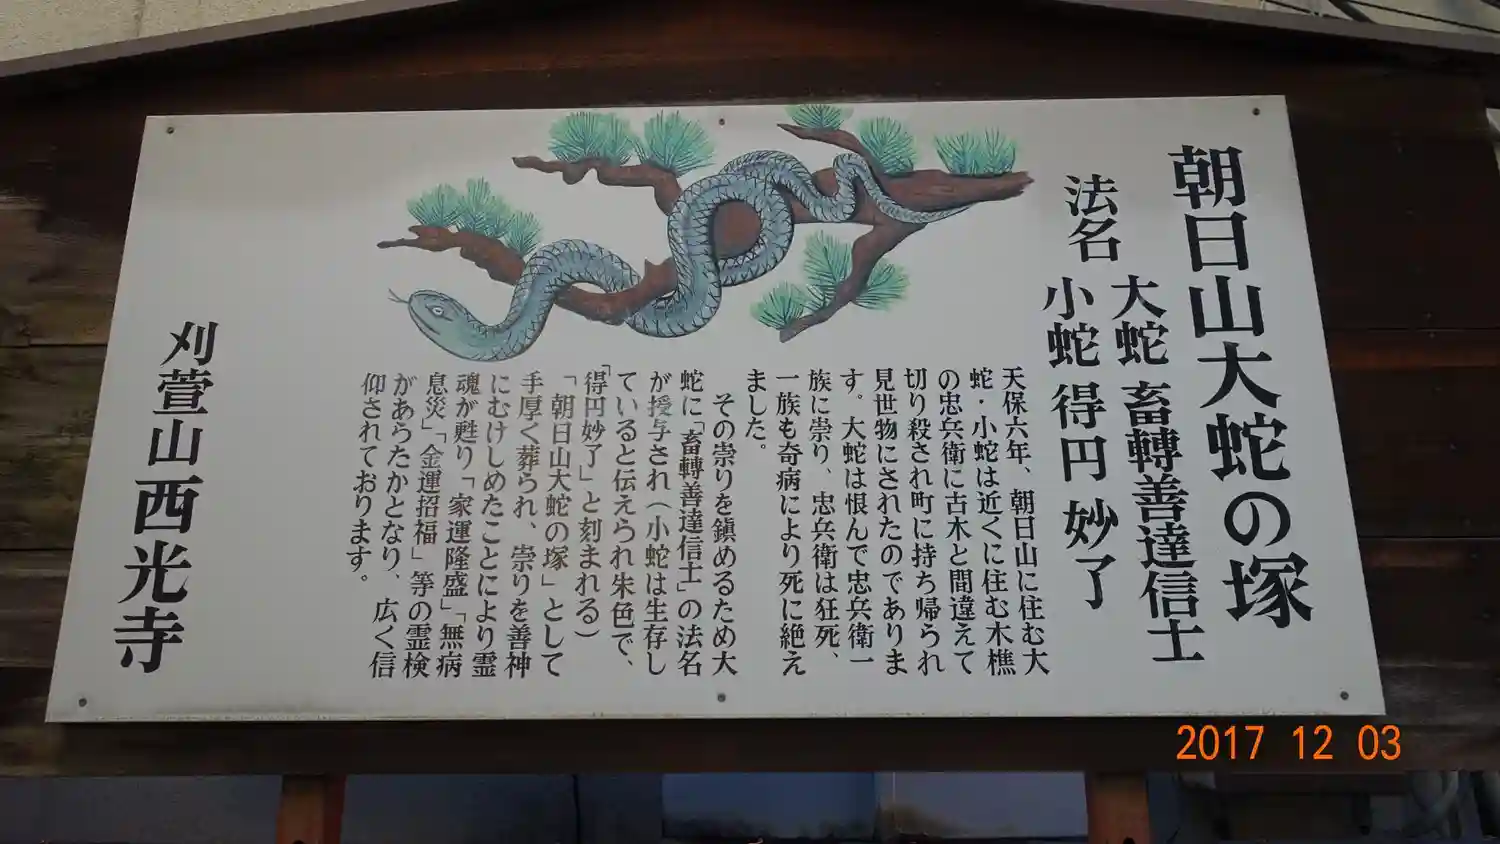 朝日山大蛇の塚
法名
大蛇 畜轉善達信士
小蛇 得円 妙了
天保六年、朝日山に住む大
蛇・小蛇は近くに住む木樵
の忠兵衛に古木と間違えて
切り殺され町に持ち帰られ
見世物にされたのでありま
す。大蛇は恨んで忠兵衛一
族に崇り、忠兵衛は狂死、
一族も奇病により死に絶え
ました。
その崇りを鎮めるため大
蛇に「畜轉善達信士」の法名
が授与され(小蛇は生存し
ていると伝えられ朱色で、
「得円妙了」と刻まれる)
「朝日山大蛇の塚」として
手厚く葬られ、崇りを善神
にむけしめたことにより霊
魂が甦り「家運隆盛」「無病
息災」「金運招福」等の霊検
があらたかとなり、広く信
仰されております。
刈萱山西光寺
2017 12 03